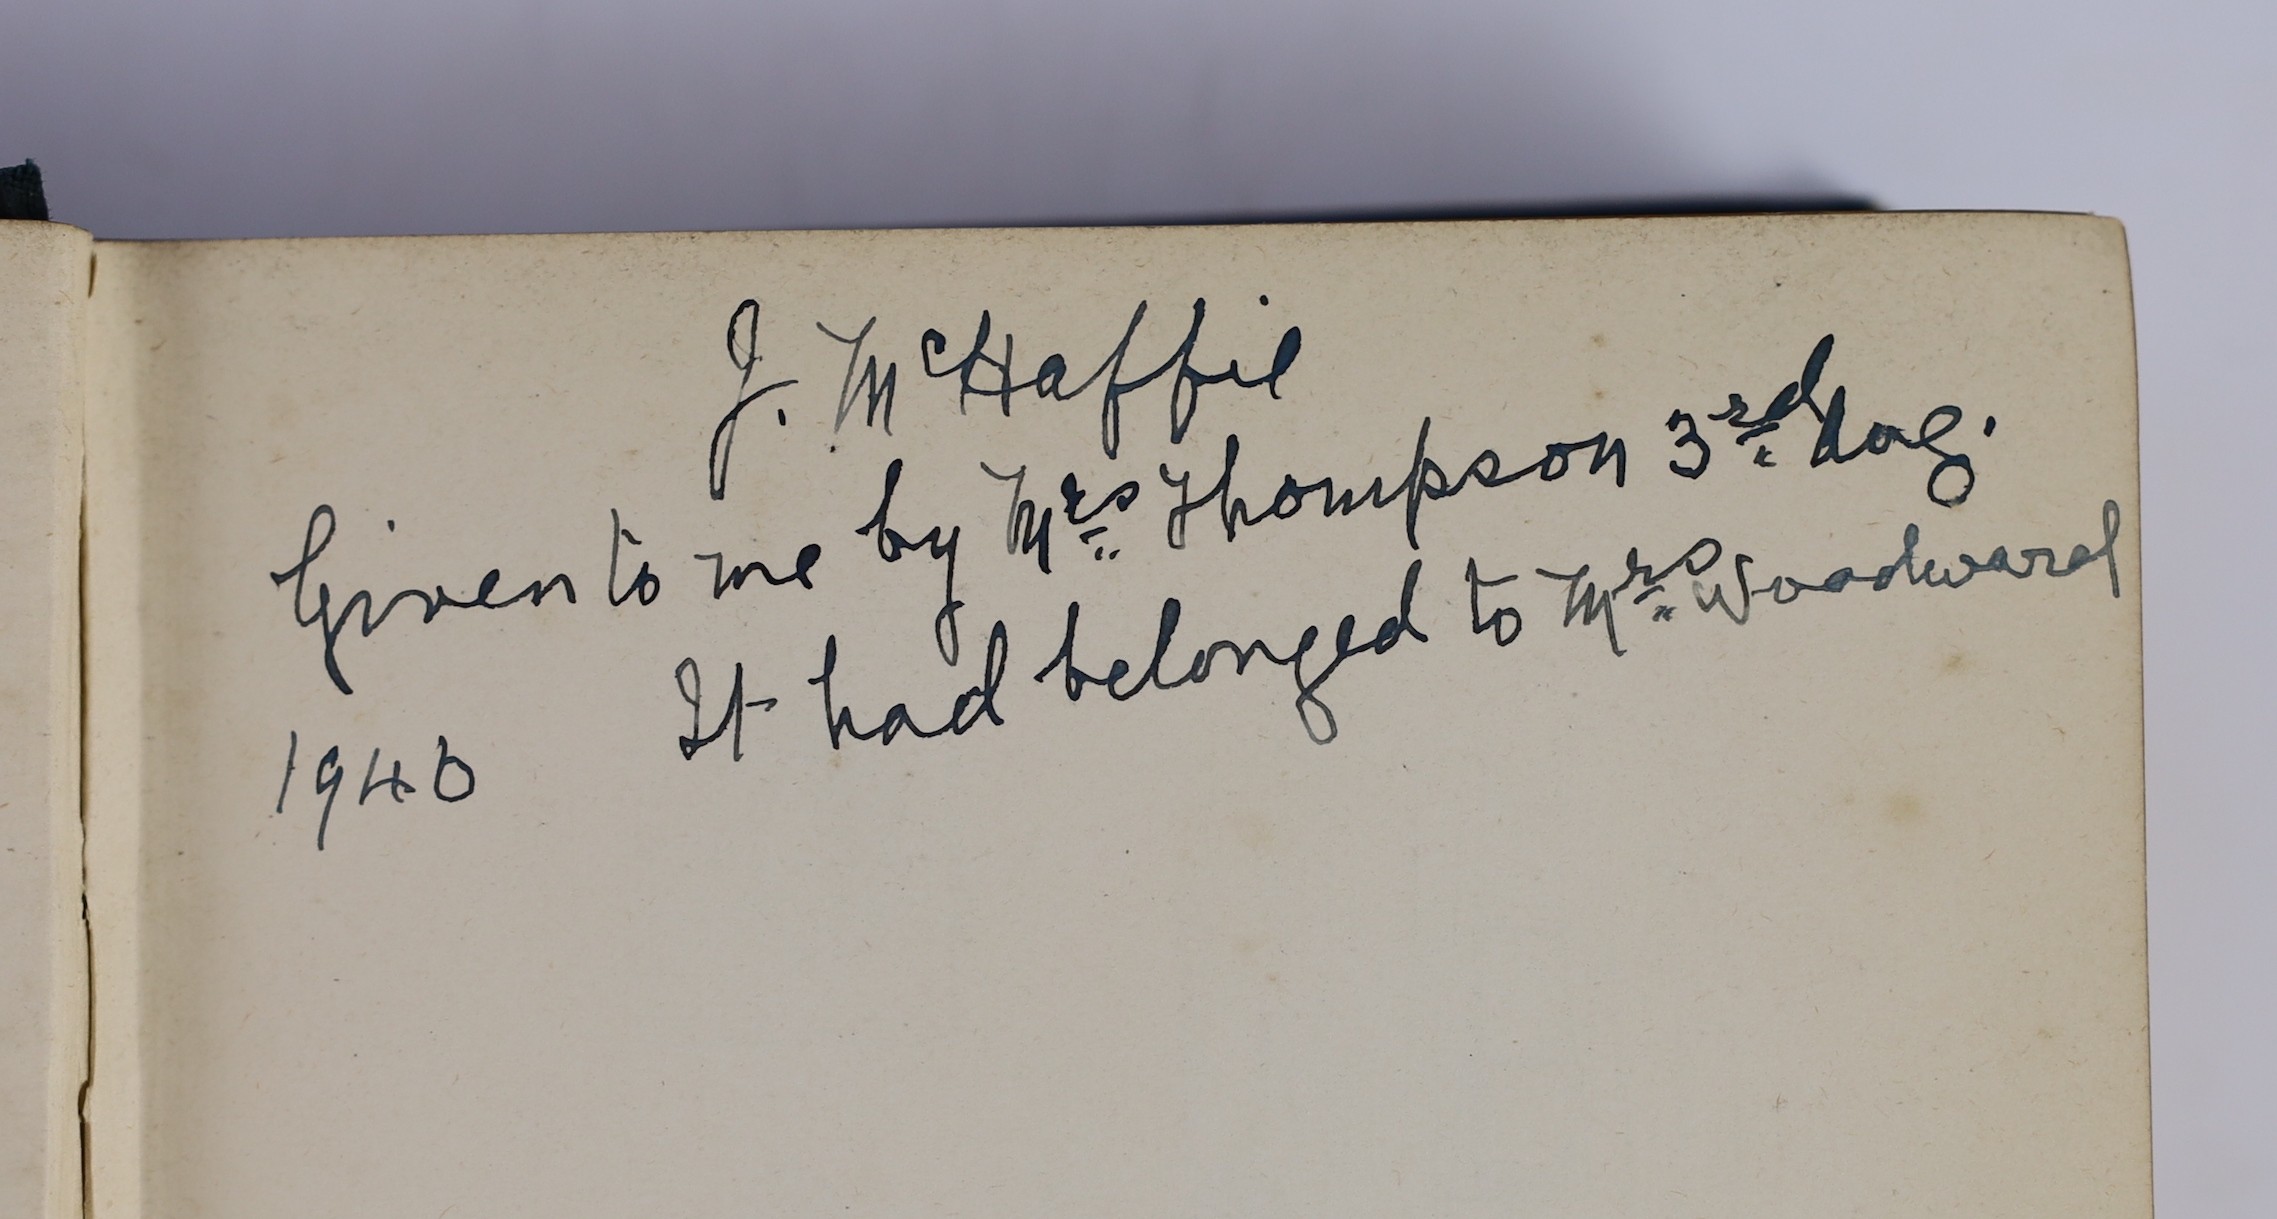 J. McHaffie
Given to me by Mrs Thompson 3rd Aug.
1940 It had belonged to Mrs Woodward